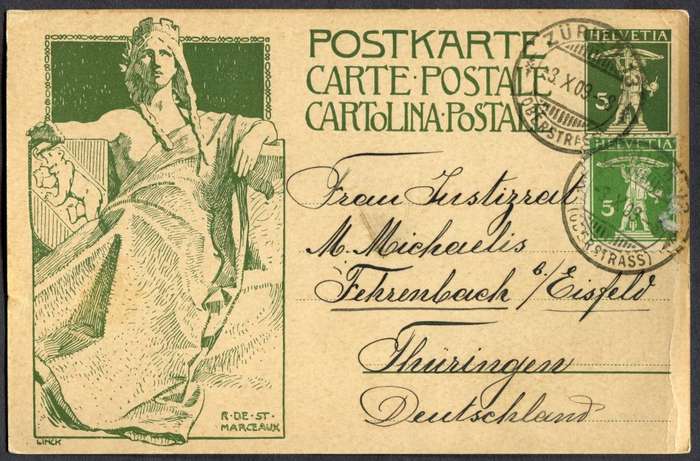 POSTKARTE
CARTE·POSTALE
CARTOLINA·POSTALE
HELVETIA
5
HELVETIA
5
ZÜRICH
3.X.09
(OBERSTRASS)
(OBERSTRASS)
Frau Justizrat
M. Michaelis
Fehrenbach b/Eisfeld
Thüringen
Deutschland
R·DE·ST·
MARCEAUX
LINCK